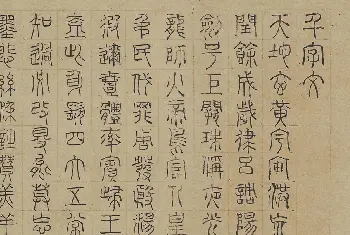 千字文
天地玄黃宇宙洪荒
閏餘成歲律呂調陽
劍号巨闕珠稱夜光
龍師火帝鳥官人皇
弔民伐罪周發殷湯
遐邇壹體率賓歸王
蓋此身髮四大五常
知過必改得能莫忘
墨悲絲染詩讚羔羊